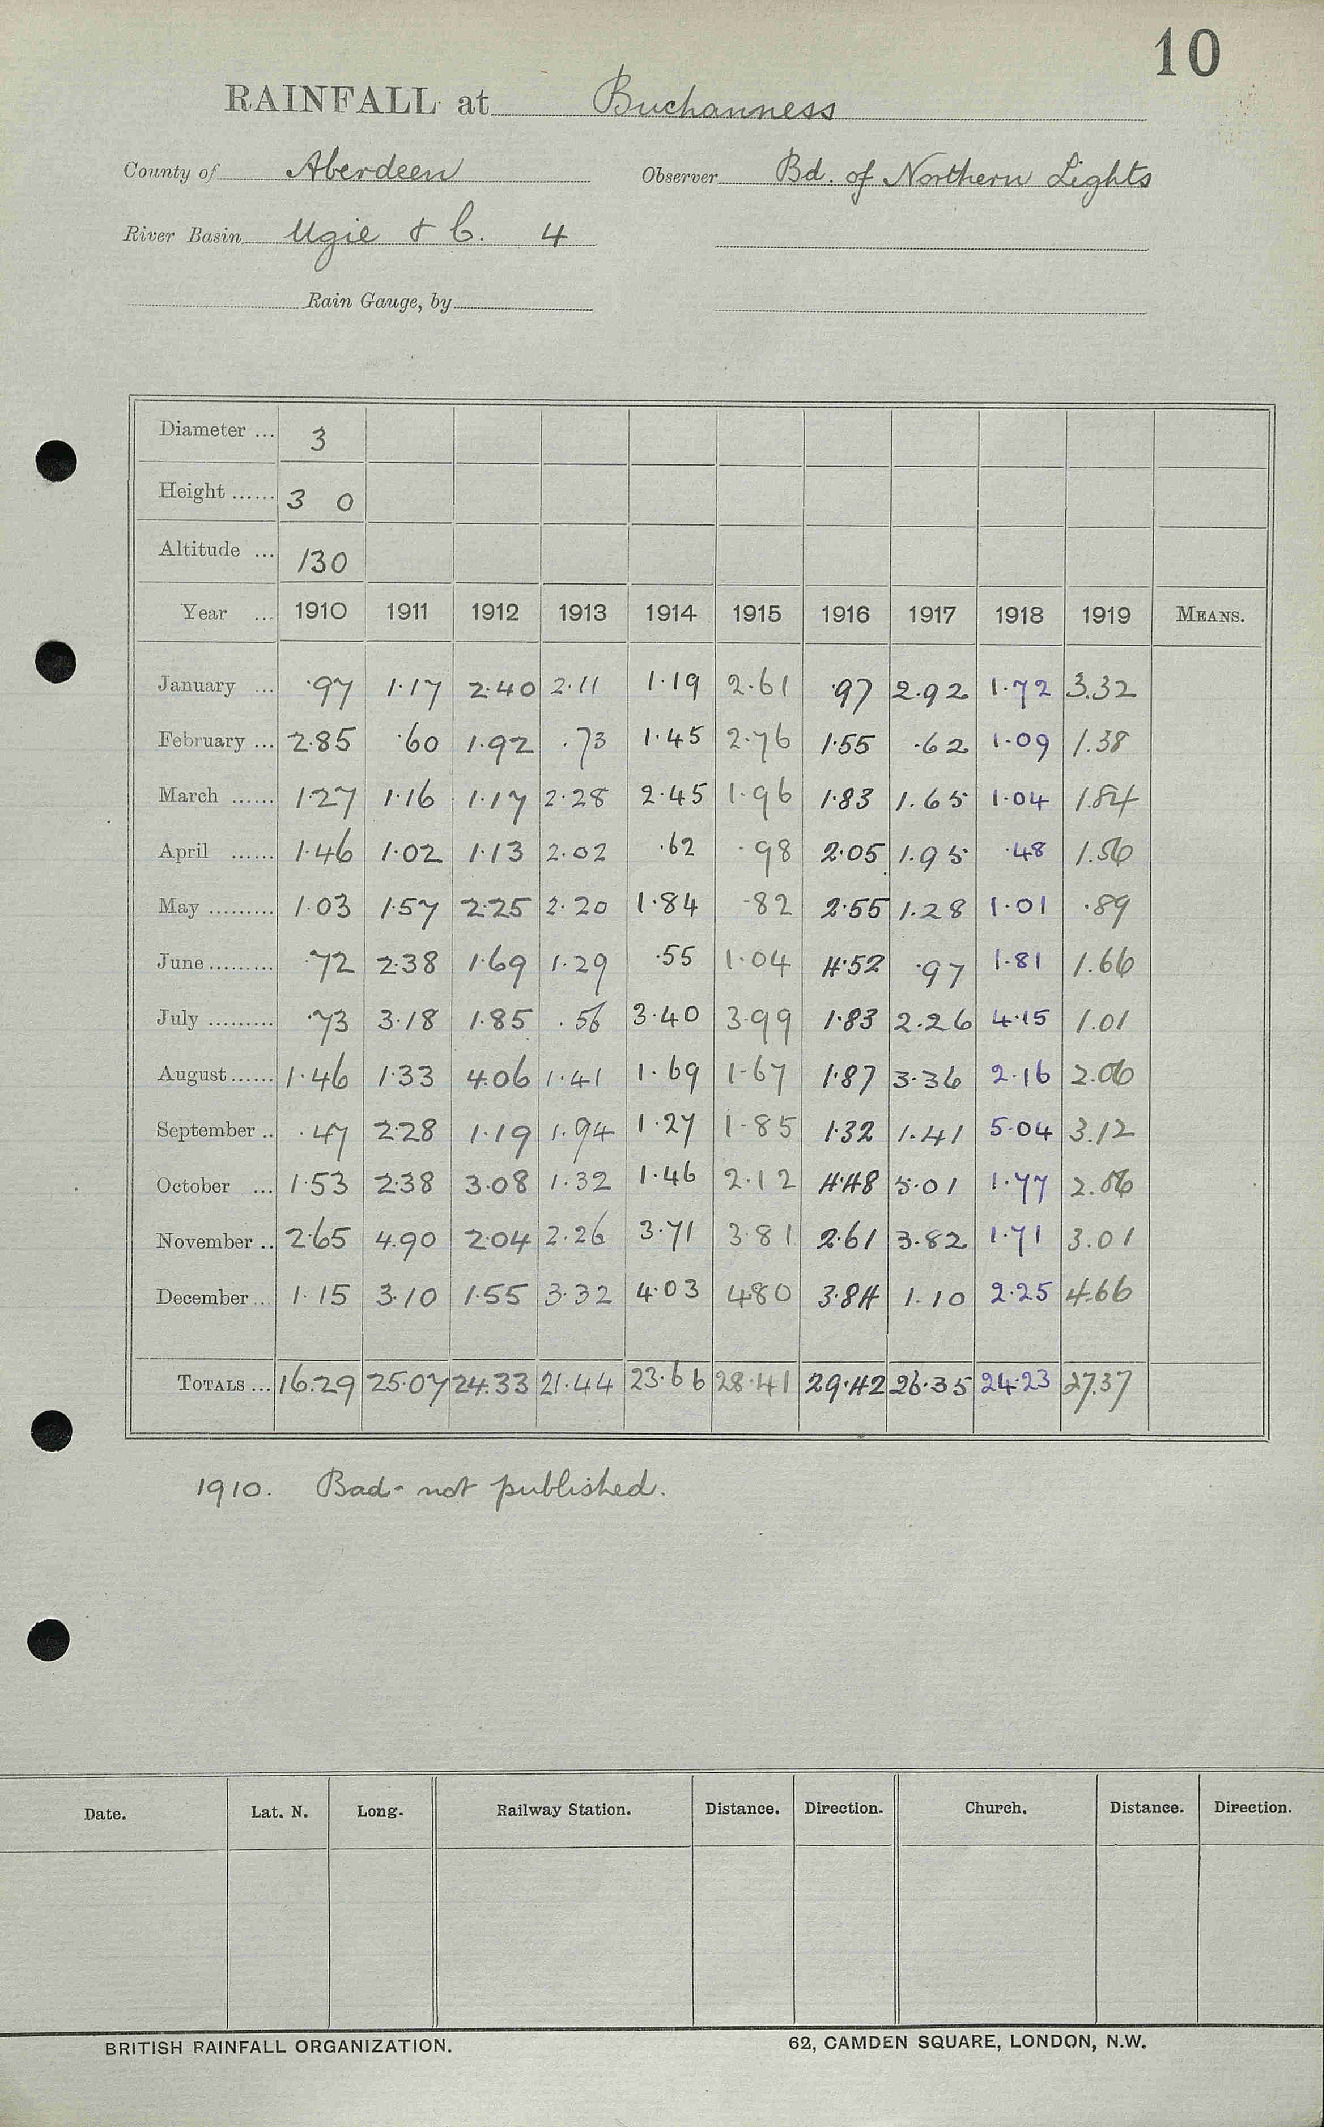 10
RAINFALL at Buchanness
County of Aberdeen Observer Bd. of Northern Lights
River Basin Ugie & C. 4
Rain Gauge, by
Diameter ... 3
Height ...... 3 0
Altitude ... 130
Year ... 1910 1911 1912 1913 1914 1915 1916 1917 1918 1919 MEANS.
January ... ·97 1·17 2·40 2·11 1·19 2·61 ·97 2·92 1·72 3.32
February ... 2·85 ·60 1·92 .73 1·45 2·76 1·55 ·62 1·09 1.38
March ...... 1·27 1·16 1·17 2·28 2·45 1·96 1·83 1.65 1·04 1.84
April ...... 1·46 1·02 1·13 2.02 ·62 ·98 2·05 1.95 ·48 1.56
May ......... 1·03 1·57 2·25 2·20 1·84 ·82 2·55 1·28 1·01 ·89
June ......... ·72 2·38 1·69 1·29 ·55 1·04 4·52 ·97 1·81 1.66
July ......... ·73 3·18 1·85 .56 3·40 3·99 1·83 2·26 4·15 1.01
August ...... 1·46 1·33 4·06 1·41 1·69 1·67 1·87 3·36 2·16 2.06
September .. ·47 2·28 1·19 1·94 1·27 1·85 1·32 1·41 5·04 3.12
October ... 1·53 2·38 3·08 1·32 1·46 2·12 4·48 5·01 1·77 2.86
November .. 2·65 4·90 2·04 2·26 3·71 3·81 2·61 3·82 1·71 3.01
December ... 1·15 3·10 1·55 3·32 4·03 4·80 3·84 1·10 2·25 4.66
TOTALS ... 16·29 25·07 24·33 21·44 23·66 28·41 29·42 26·35 24·23 27.37
1910. Bad - not published.
Date. Lat. N. Long. Railway Station. Distance. Direction. Church. Distance. Direction.
BRITISH RAINFALL ORGANIZATION. 62, CAMDEN SQUARE, LONDON, N.W.